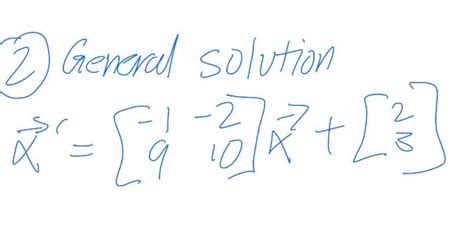 ② General solution
x⃗' = [-1 -2; 9 10] x⃗ + [2; 3]